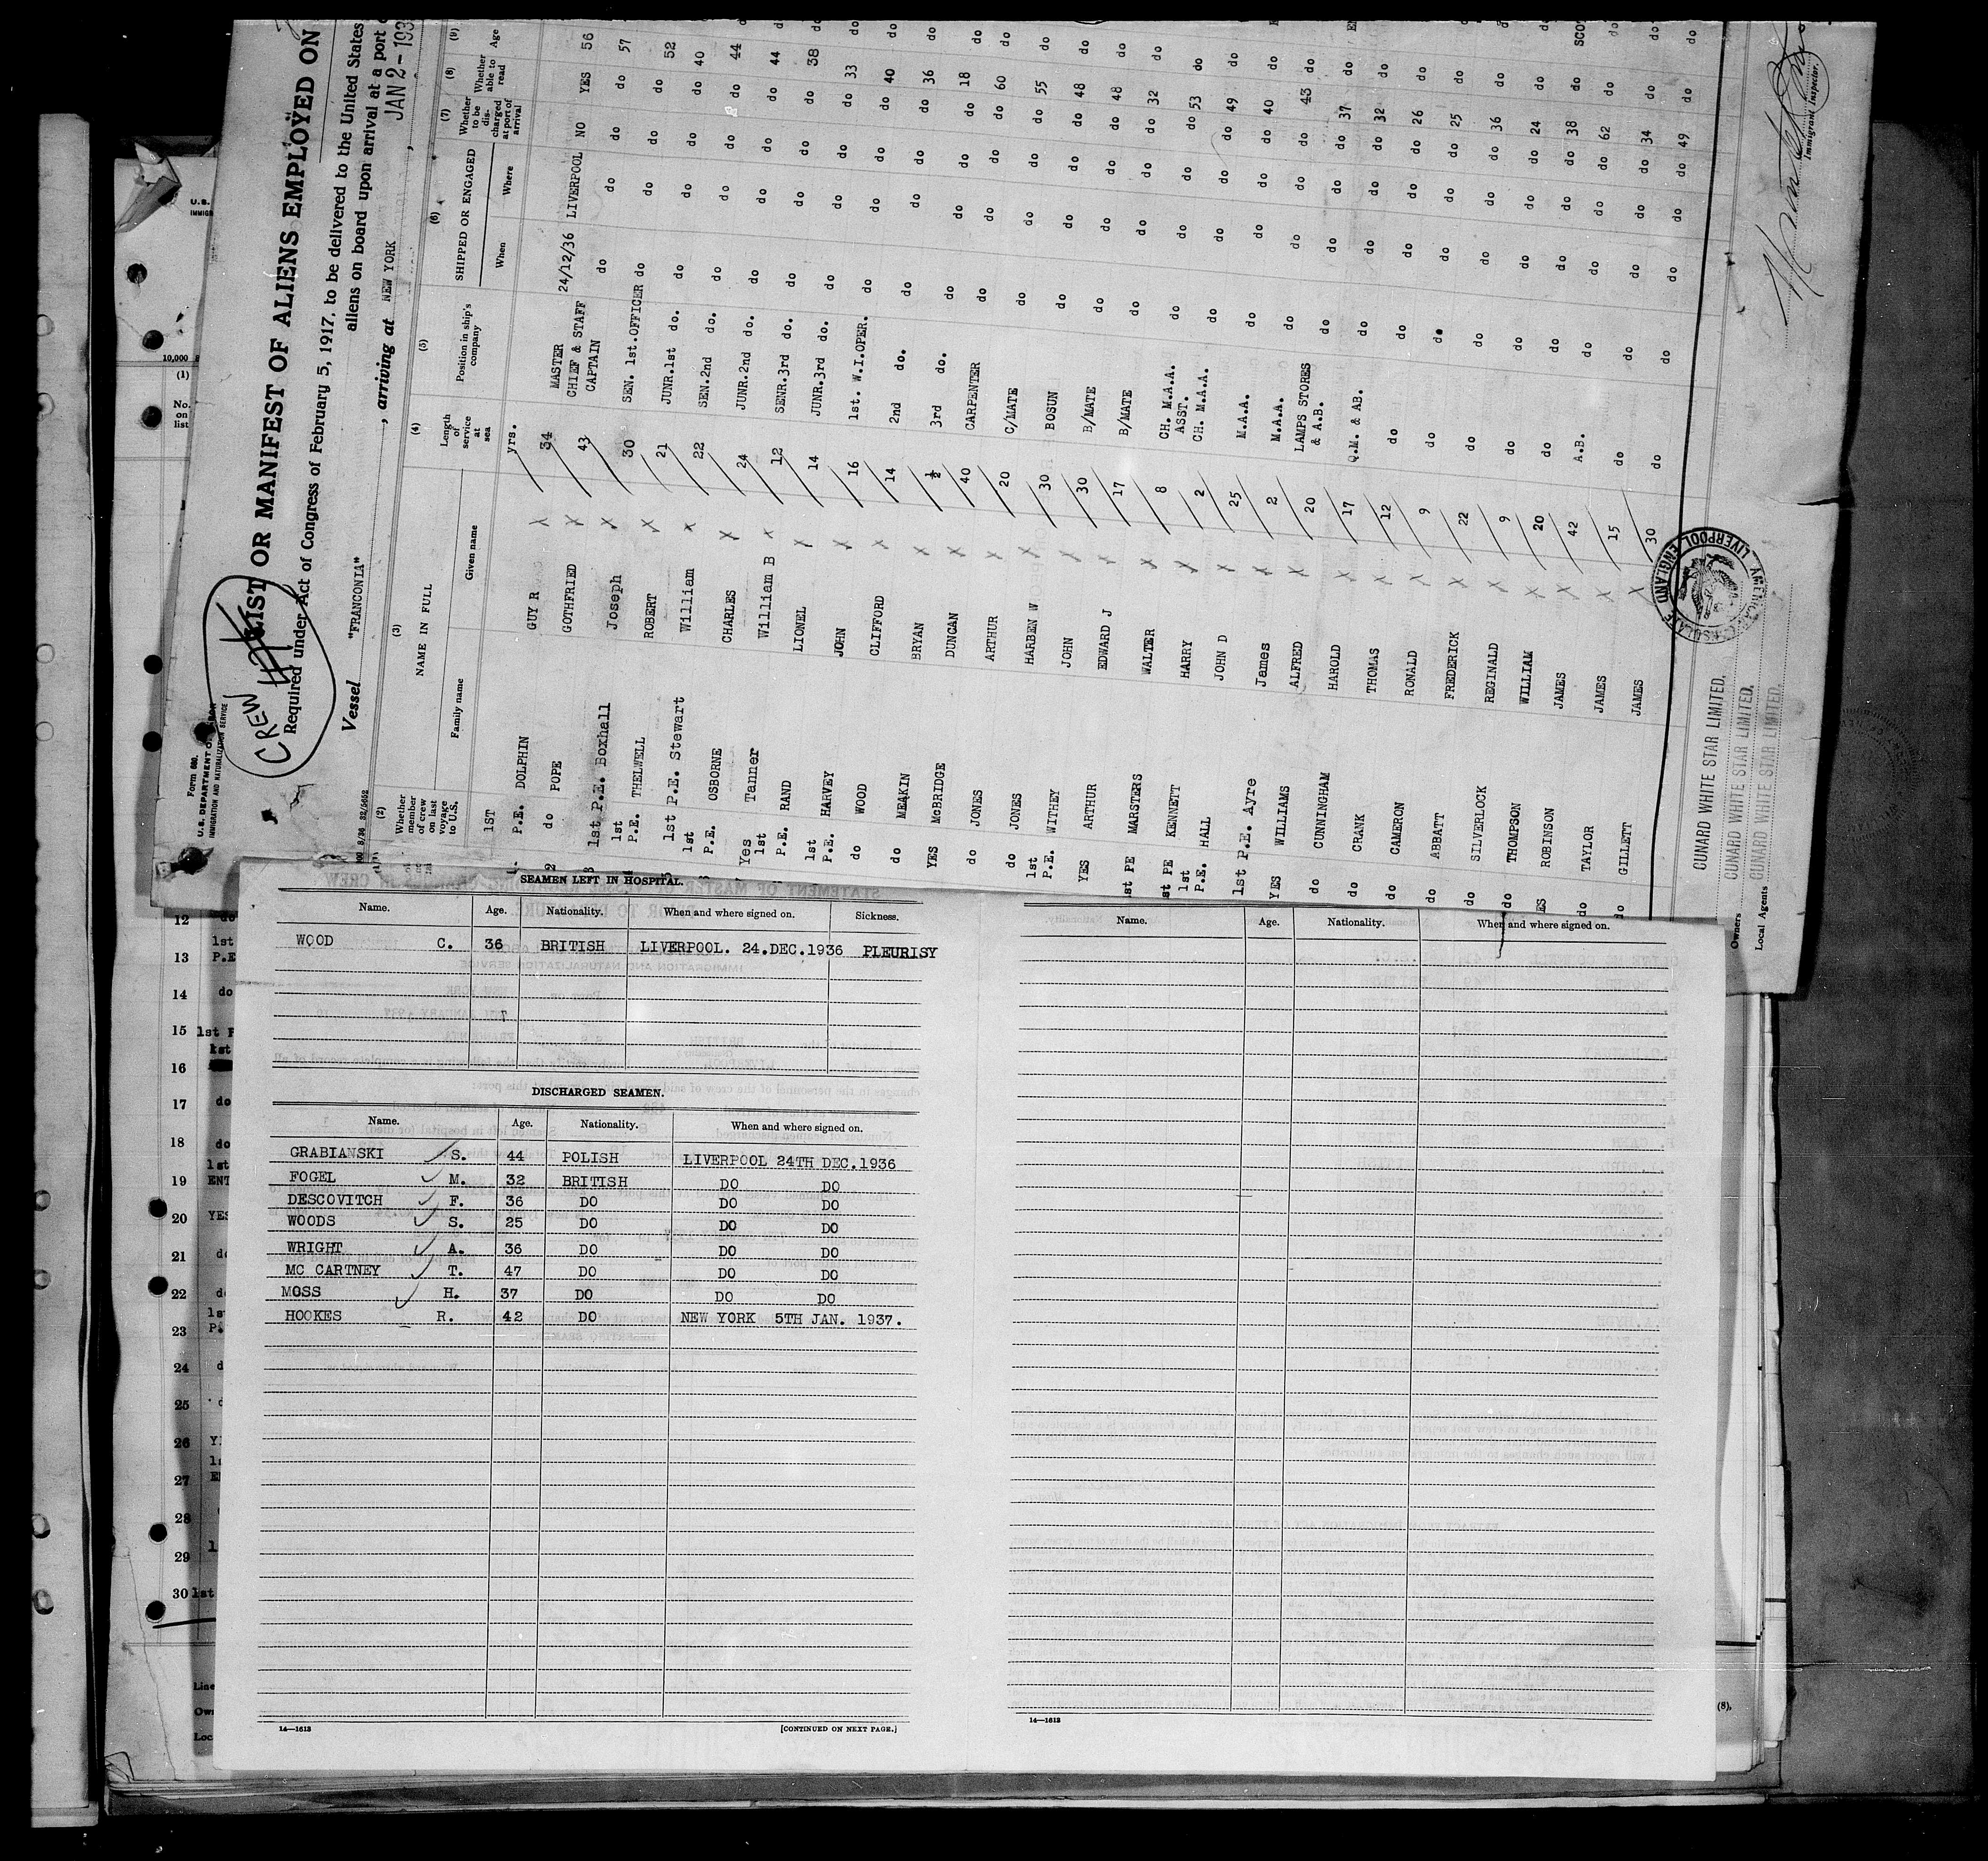 Form 680.
U. S. DEPARTMENT OF LABOR
IMMIGRATION AND NATURALIZATION SERVICE
CREW LIST
LIST OR MANIFEST OF ALIENS EMPLOYED ON
Required under Act of Congress of February 5, 1917, to be delivered to the United States
aliens on board upon arrival at a port
Vessel "FRANCONIA", arriving at NEW YORK, JAN 2-193
(2) (3) (4) (5) (6) (7) (8) (9)
Whether member of crew on last voyage to U.S.
NAME IN FULL
Family name Given name
Length of service at sea
Position in ship's company
SHIPPED OR ENGAGED
When Where
Whether to be discharged at port of arrival
Whether able to read
Age
yrs.
1ST P.E. DOLPHIN GUY R 34 MASTER 24/12/36 LIVERPOOL NO YES 56
2 do POPE GOTHFRIED 43 CHIEF & STAFF CAPTAIN do do do do 57
3 1st P.E. Boxhall Joseph 30 SEN. 1st.OFFICER do do do do 52
1st P.E. THELWELL ROBERT 21 JUNR.1st do. do do do do 40
1st P.E. Stewart William 22 SEN.2nd do. do do do do 44
1st P.E. OSBORNE CHARLES 24 JUNR.2nd do. do do do do 44
Yes Tanner William B 12 SENR.3rd do. do do do do 38
1st P.E. RAND LIONEL 14 JUNR.3rd do. do do do do 33
1st P.E. HARVEY JOHN 16 1st. W.I.OPER. do do do do 40
do WOOD CLIFFORD 14 2nd do. do do do do 36
do MEAKIN BRYAN ½ 3rd do. do do do do 18
YES McBRIDGE DUNCAN 40 CARPENTER do do do do 60
do JONES ARTHUR 20 C/MATE do do do do 55
do JONES HARBEN W 30 BOSUN do do do do 48
1st P.E. WITHEY JOHN 30 B/MATE do do do do 48
YES ARTHUR EDWARD J 17 B/MATE do do do do 32
1st PE MARSTERS WALTER 8 CH. M.A.A. do do do do 53
1st PE KENNETT HARRY 2 ASST. CH. M.A.A. do do do do 49
1st P.E. HALL JOHN D 25 M.A.A. do do do do 40
1st P.E. Ayre James 2 M.A.A. do do do do 43
YES WILLIAMS ALFRED 20 LAMPS STORES & A.B. do do do do 37
do CUNNINGHAM HAROLD 17 Q.M. & AB. do do do do 32
do CRANK THOMAS 12 do do do do do 26
do CAMERON RONALD 9 do do do do do 25
do ABBATT FREDERICK 22 do do do do do 36
do SILVERLOCK REGINALD 9 do do do do do 24
do THOMPSON WILLIAM 20 do do do do do 38
ES ROBINSON JAMES 42 A.B. do do do do 62
do TAYLOR JAMES 15 do do do do do 34
do GILLETT JAMES 30 do do do do do 49
AMERICAN CONSULATE LIVERPOOL, ENGLAND
CUNARD WHITE STAR LIMITED.
Owners CUNARD WHITE STAR LIMITED.
Local Agents CUNARD WHITE STAR LIMITED.
Immigrant Inspector.
SEAMEN LEFT IN HOSPITAL.
Name. Age. Nationality. When and where signed on. Sickness.
WOOD C. 36 BRITISH LIVERPOOL. 24.DEC.1936 PLEURISY
DISCHARGED SEAMEN.
Name. Age. Nationality. When and where signed on.
GRABIANSKI S. 44 POLISH LIVERPOOL 24TH DEC.1936
FOGEL M. 32 BRITISH DO DO
DESCOVITCH F. 36 DO DO DO
WOODS S. 25 DO DO DO
WRIGHT A. 36 DO DO DO
MC CARTNEY T. 47 DO DO DO
MOSS H. 37 DO DO DO
HOOKES R. 42 DO NEW YORK 5TH JAN. 1937.
14—1613 [CONTINUED ON NEXT PAGE.]
Name. Age. Nationality. When and where signed on.
14—1613
10,000
(1)
No. on list
12
13
14
15
16
17
18
19
20
21
22
23
24
25
26
27
28
29
30